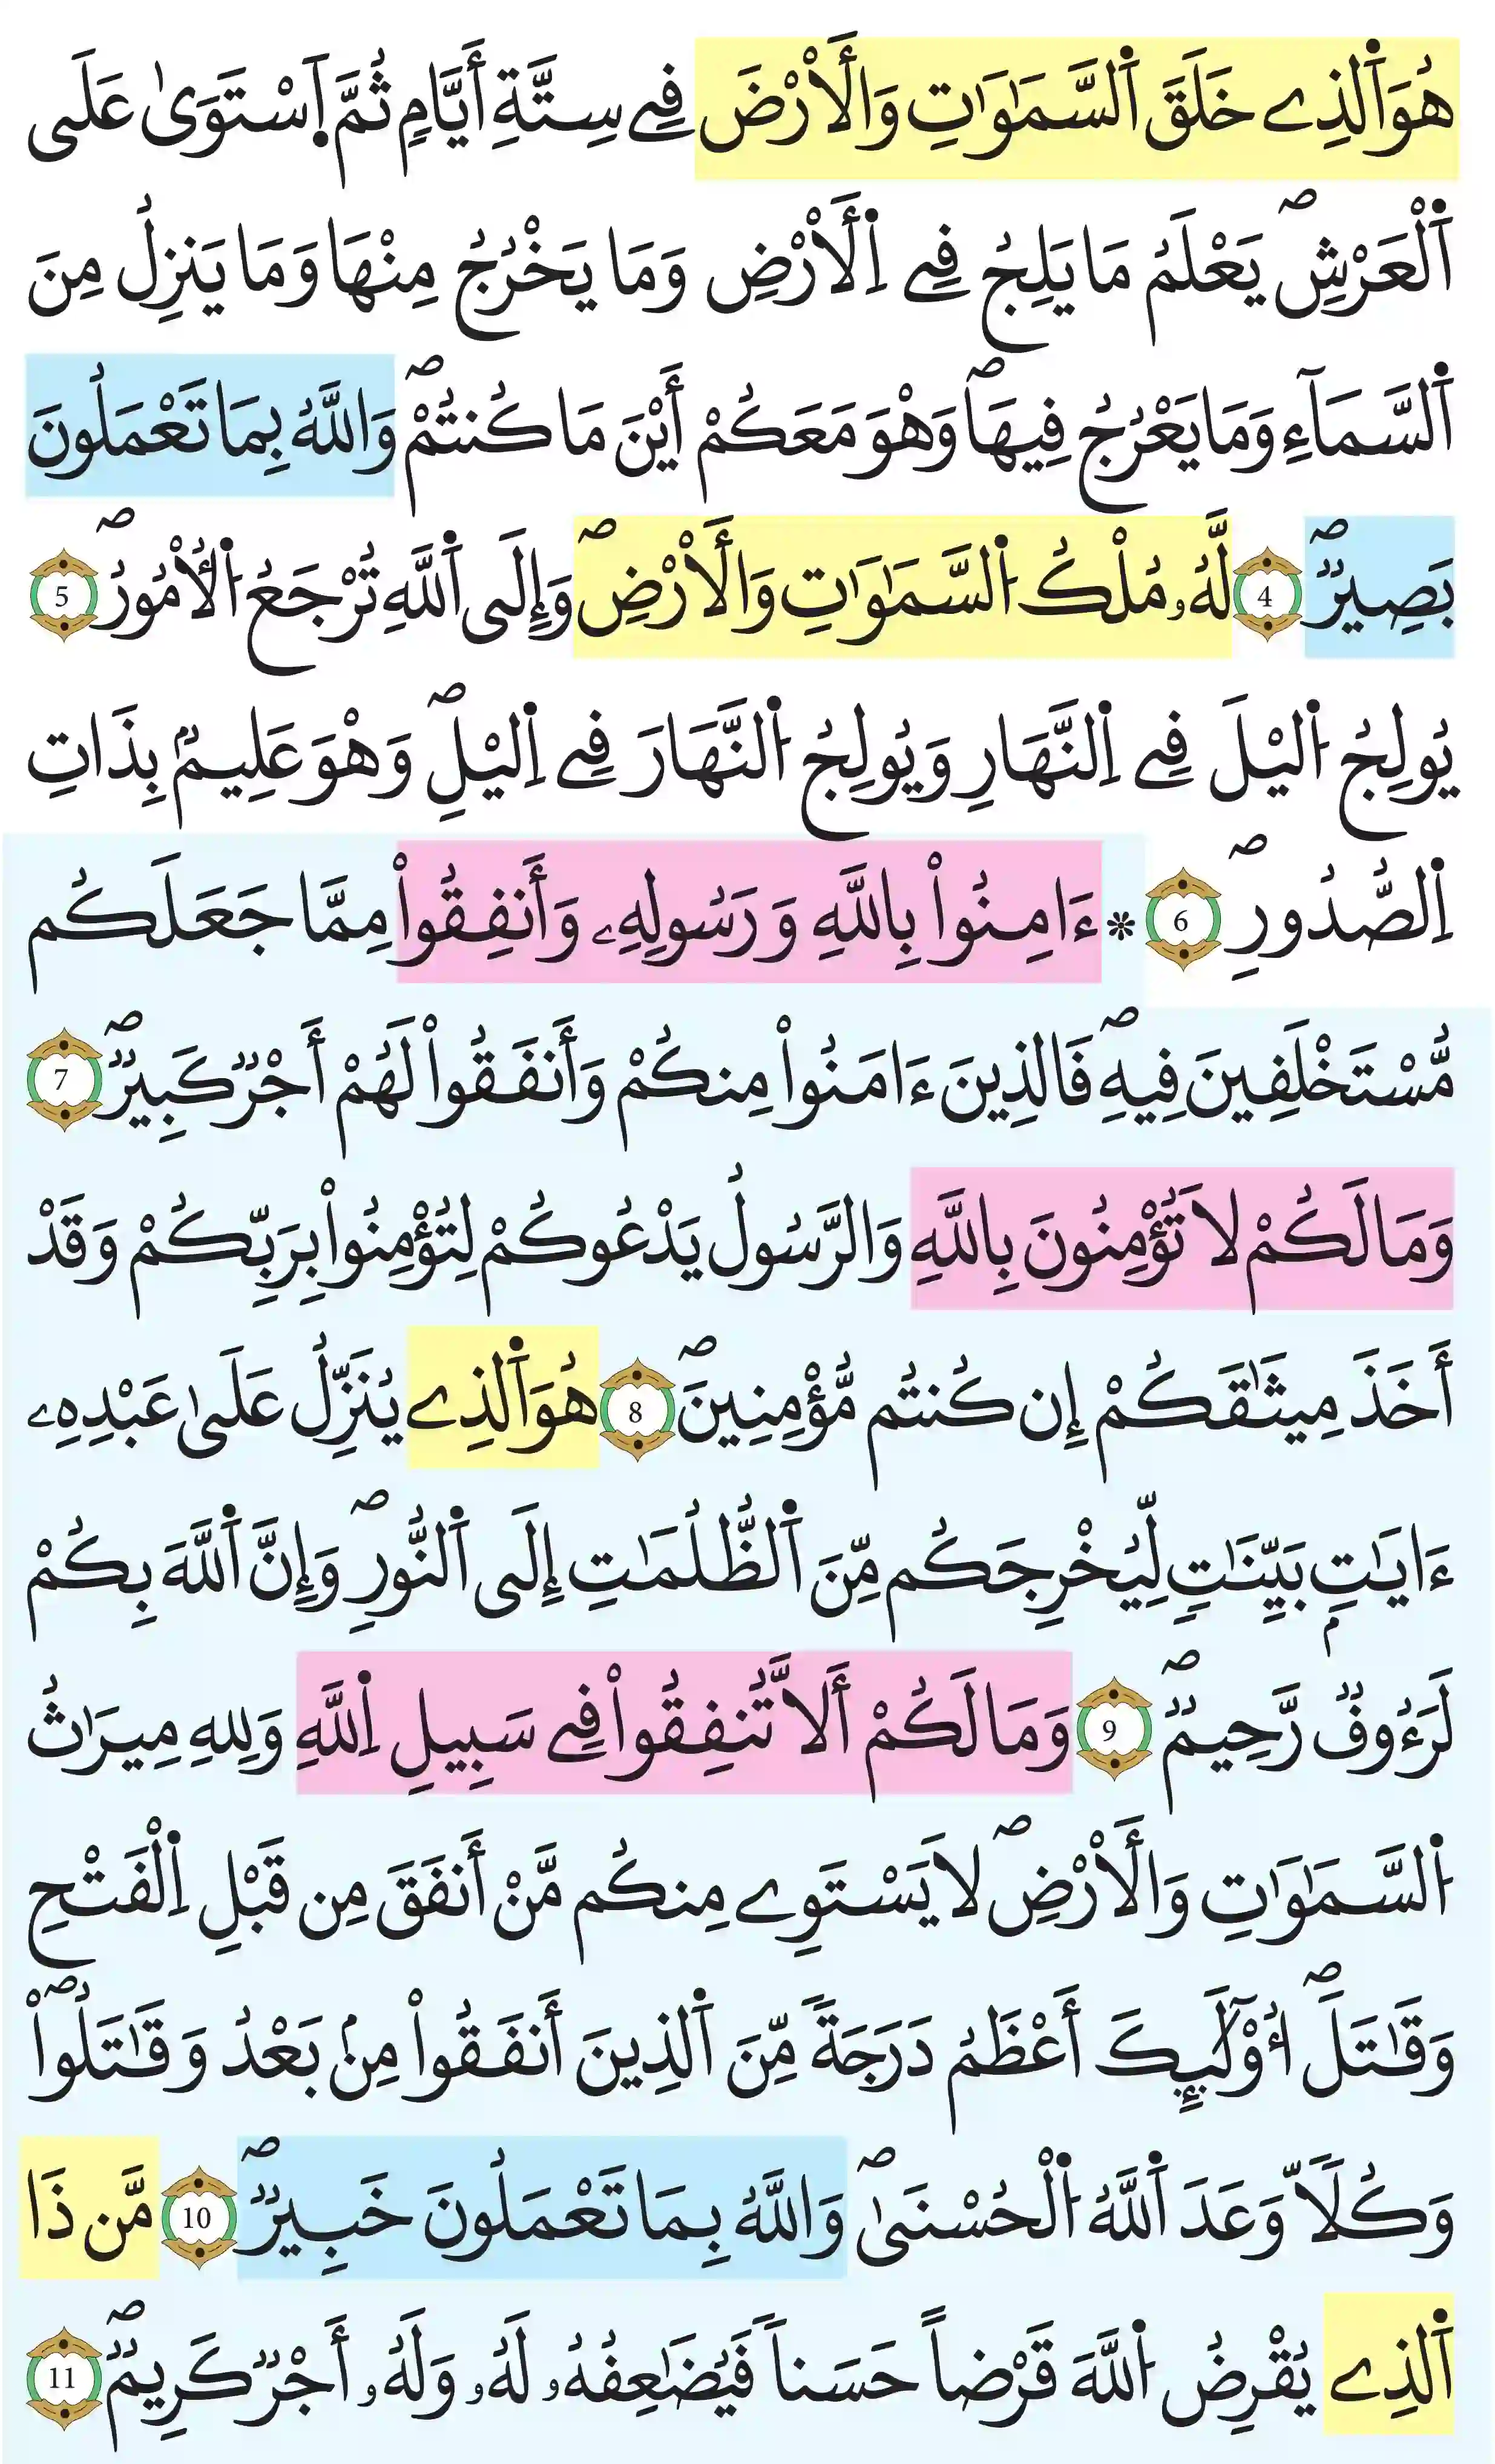 هُوَ اَ۬لذِے خَلَقَ اَ۬لسَّمَٰوَٰتِ وَالَارْضَ فِے سِتَّةِ أَيَّامٖ ثُمَّ اَ۪سْتَوَىٰ عَلَى
اَ۬لْعَرْشِۖ يَعْلَمُ مَا يَلِجُ فِے اِ۬لَارْضِ وَمَا يَخْرُجُ مِنْهَا وَمَا يَنزِلُ مِنَ
اَ۬لسَّمَآءِ وَمَا يَعْرُجُ فِيهَاۖ وَهْوَ مَعَكُمْ أَيْنَ مَا كُنتُمْۖ وَاللَّهُ بِمَا تَعْمَلُونَ
بَصِيرٞۖ 4 لَّهُۥ مُلْكُ اُ۬لسَّمَٰوَٰتِ وَالَارْضِۖ وَإِلَى اَ۬للَّهِ تُرْجَعُ اُ۬لُامُورُۖ 5
يُولِجُ اُ۬ليْلَ فِے اِ۬لنَّهَارِ وَيُولِجُ اُ۬لنَّهَارَ فِے اِ۬ليْلِۖ وَهْوَ عَلِيمُۢ بِذَاتِ
اِ۬لصُّدُورِۖ 6 * ءَامِنُواْ بِاللَّهِ وَرَسُولِهِۦ وَأَنفِقُواْ مِمَّا جَعَلَكُم
مُّسْتَخْلَفِينَ فِيهِۖ فَالذِينَ ءَامَنُواْ مِنكُمْ وَأَنفَقُواْ لَهُمْ أَجْرٞ كَبِيرٞۖ 7
وَمَا لَكُمْ لَا تُؤْمِنُونَ بِاللَّهِ وَالرَّسُولُ يَدْعُوكُمْ لِتُؤْمِنُواْ بِرَبِّكُمْ وَقَدْ
أَخَذَ مِيثَٰقَكُمْ إِن كُنتُم مُّؤْمِنِينَۖ 8 هُوَ اَ۬لذِے يُنَزِّلُ عَلَىٰ عَبْدِهِۦ
ءَايَٰتِۢ بَيِّنَٰتٖ لِّيُخْرِجَكُم مِّنَ اَ۬لظُّلُمَٰتِ إِلَى اَ۬لنُّورِۖ وَإِنَّ اَ۬للَّهَ بِكُمْ
لَرَءُوفٞ رَّحِيمٞۖ 9 وَمَا لَكُمْ أَلَّا تُنفِقُواْ فِے سَبِيلِ اِ۬للَّهِ وَلِلهِ مِيرَٰثُ
اُ۬لسَّمَٰوَٰتِ وَالَارْضِۖ لَا يَسْتَوِے مِنكُم مَّنْ أَنفَقَ مِن قَبْلِ اِ۬لْفَتْحِ
وَقَٰتَلَۖ أُوْلَٰٓئِكَ أَعْظَمُ دَرَجَةٗ مِّنَ اَ۬لذِينَ أَنفَقُواْ مِنۢ بَعْدُ وَقَٰتَلُواْۖ
وَكُلّاٗ وَعَدَ اَ۬للَّهُ اُ۬لْحُسْنَىٰۖ وَاللَّهُ بِمَا تَعْمَلُونَ خَبِيرٞۖ 10 مَّن ذَا
اَ۬لذِے يُقْرِضُ اُ۬للَّهَ قَرْضاً حَسَناٗ فَيُضَٰعِفُهُۥ لَهُۥ وَلَهُۥ أَجْرٞ كَرِيمٞۖ 11